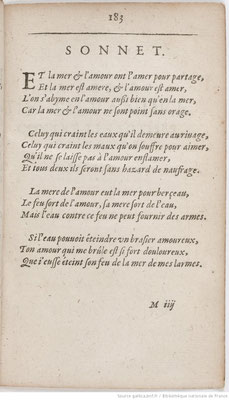 183
SONNET.
ET la mer & l'amour ont l'amer pour partage,
Et la mer est amere, & l'amour est amer,
L'on s'abyme en l'amour aussi bien qu'en la mer,
Car la mer & l'amour ne sont point sans orage.
Celuy qui craint les eaux qu'il demeure au rivage,
Celuy qui craint les maux qu'on souffre pour aimer,
Qu'il ne se laisse pas à l'amour enflamer,
Et tous deux ils seront sans hazard de naufrage.
La mere de l'amour eut la mer pour berçeau,
Le feu sort de l'amour, sa mere sort de l'eau,
Mais l'eau contre ce feu ne peut fournir des armes.
Si l'eau pouvoit éteindre vn brasier amoureux,
Ton amour qui me brûle est si fort douloureux,
Que i'eusse éteint son feu de la mer de mes larmes.
M iiij
Source gallica.bnf.fr / Bibliothèque nationale de France